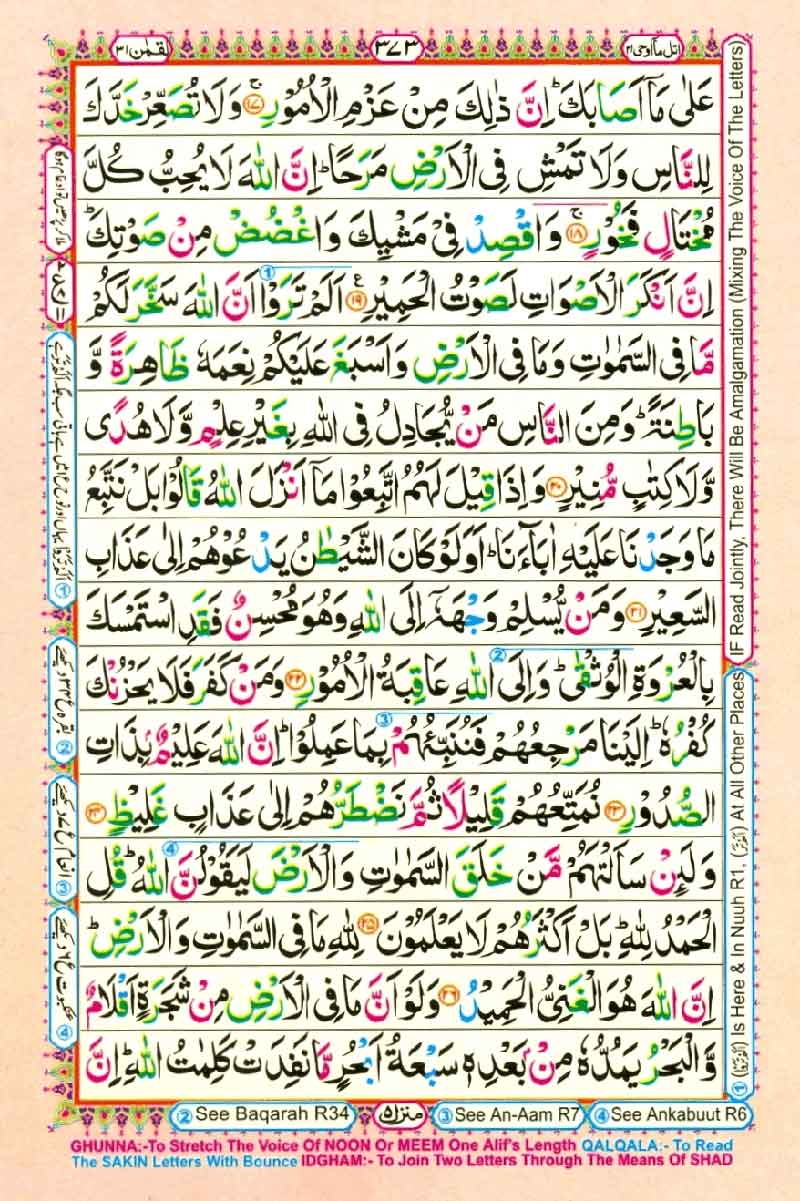 اتل مآ اوحی ۲۱
۳۷۳
لقمٰن ۳۱
عَلٰى مَاۤ اَصَابَكَ ؕ اِنَّ ذٰلِكَ مِنْ عَزْمِ الْاُمُوْرِ ۚ ﴿۱۷﴾ وَلَا تُصَعِّرْ خَدَّكَ
لِلنَّاسِ وَلَا تَمْشِ فِى الْاَرْضِ مَرَحًا ؕ اِنَّ اللّٰهَ لَا يُحِبُّ كُلَّ
مُخْتَالٍ فَخُوْرٍ ۚ ﴿۱۸﴾ وَاقْصِدْ فِىْ مَشْيِكَ وَاغْضُضْ مِنْ صَوْتِكَ ؕ
اِنَّ اَنْكَرَ الْاَصْوَاتِ لَصَوْتُ الْحَمِيْرِ ﴿۱۹﴾ ع ① اَلَمْ تَرَوْا اَنَّ اللّٰهَ سَخَّرَ لَكُمْ
مَّا فِى السَّمٰوٰتِ وَمَا فِى الْاَرْضِ وَاَسْبَغَ عَلَيْكُمْ نِعَمَهٗ ظَاهِرَةً وَّ
بَاطِنَةً ؕ وَمِنَ النَّاسِ مَنْ يُّجَادِلُ فِى اللّٰهِ بِغَيْرِ عِلْمٍ وَّلَا هُدًى
وَّلَا كِتٰبٍ مُّنِيْرٍ ﴿۲۰﴾ وَاِذَا قِيْلَ لَهُمُ اتَّبِعُوْا مَاۤ اَنْزَلَ اللّٰهُ قَالُوْا بَلْ نَتَّبِعُ
مَا وَجَدْنَا عَلَيْهِ اٰبَآءَنَا ؕ اَوَلَوْ كَانَ الشَّيْطٰنُ يَدْعُوْهُمْ اِلٰى عَذَابِ
السَّعِيْرِ ﴿۲۱﴾ وَمَنْ يُّسْلِمْ وَجْهَهٗۤ اِلَى اللّٰهِ وَهُوَ مُحْسِنٌ فَقَدِ اسْتَمْسَكَ
بِالْعُرْوَةِ الْوُثْقٰى ؕ وَاِلَى اللّٰهِ ② عَاقِبَةُ الْاُمُوْرِ ﴿۲۲﴾ وَمَنْ كَفَرَ فَلَا يَحْزُنْكَ
كُفْرُهٗ ؕ اِلَيْنَا مَرْجِعُهُمْ فَنُنَبِّئُهُمْ ③ بِمَا عَمِلُوْا ؕ اِنَّ اللّٰهَ عَلِيْمٌۢ بِذَاتِ
الصُّدُوْرِ ﴿۲۳﴾ نُمَتِّعُهُمْ قَلِيْلًا ثُمَّ نَضْطَرُّهُمْ اِلٰى عَذَابٍ غَلِيْظٍ ﴿۲۴﴾
وَلَئِنْ سَاَلْتَهُمْ مَّنْ خَلَقَ السَّمٰوٰتِ وَالْاَرْضَ لَيَقُوْلُنَّ ④ اللّٰهُ ؕ قُلِ
الْحَمْدُ لِلّٰهِ ؕ بَلْ اَكْثَرُهُمْ لَا يَعْلَمُوْنَ ﴿۲۵﴾ لِلّٰهِ مَا فِى السَّمٰوٰتِ وَالْاَرْضِ ؕ
اِنَّ اللّٰهَ هُوَ الْغَنِىُّ الْحَمِيْدُ ﴿۲۶﴾ وَلَوْ اَنَّ مَا فِى الْاَرْضِ مِنْ شَجَرَةٍ اَقْلَامٌ
وَّالْبَحْرُ يَمُدُّهٗ مِنْۢ بَعْدِهٖ سَبْعَةُ اَبْحُرٍ مَّا نَفِدَتْ كَلِمٰتُ اللّٰهِ ؕ اِنَّ
① (اَلَمْ تَرَوْا) Is Here & In Nuuh R1, (اَلَمْ تَرَ) At All Other Places
(IF Read Jointly, There Will Be Amalgamation (Mixing The Voice Of The Letters)
② See Baqarah R34
منزل ۵
③ See An-Aam R7
④ See Ankabuut R6
GHUNNA:-To Stretch The Voice Of NOON Or MEEM One Alif's Length QALQALA:- To Read
The SAKIN Letters With Bounce IDGHAM:- To Join Two Letters Through The Means Of SHAD